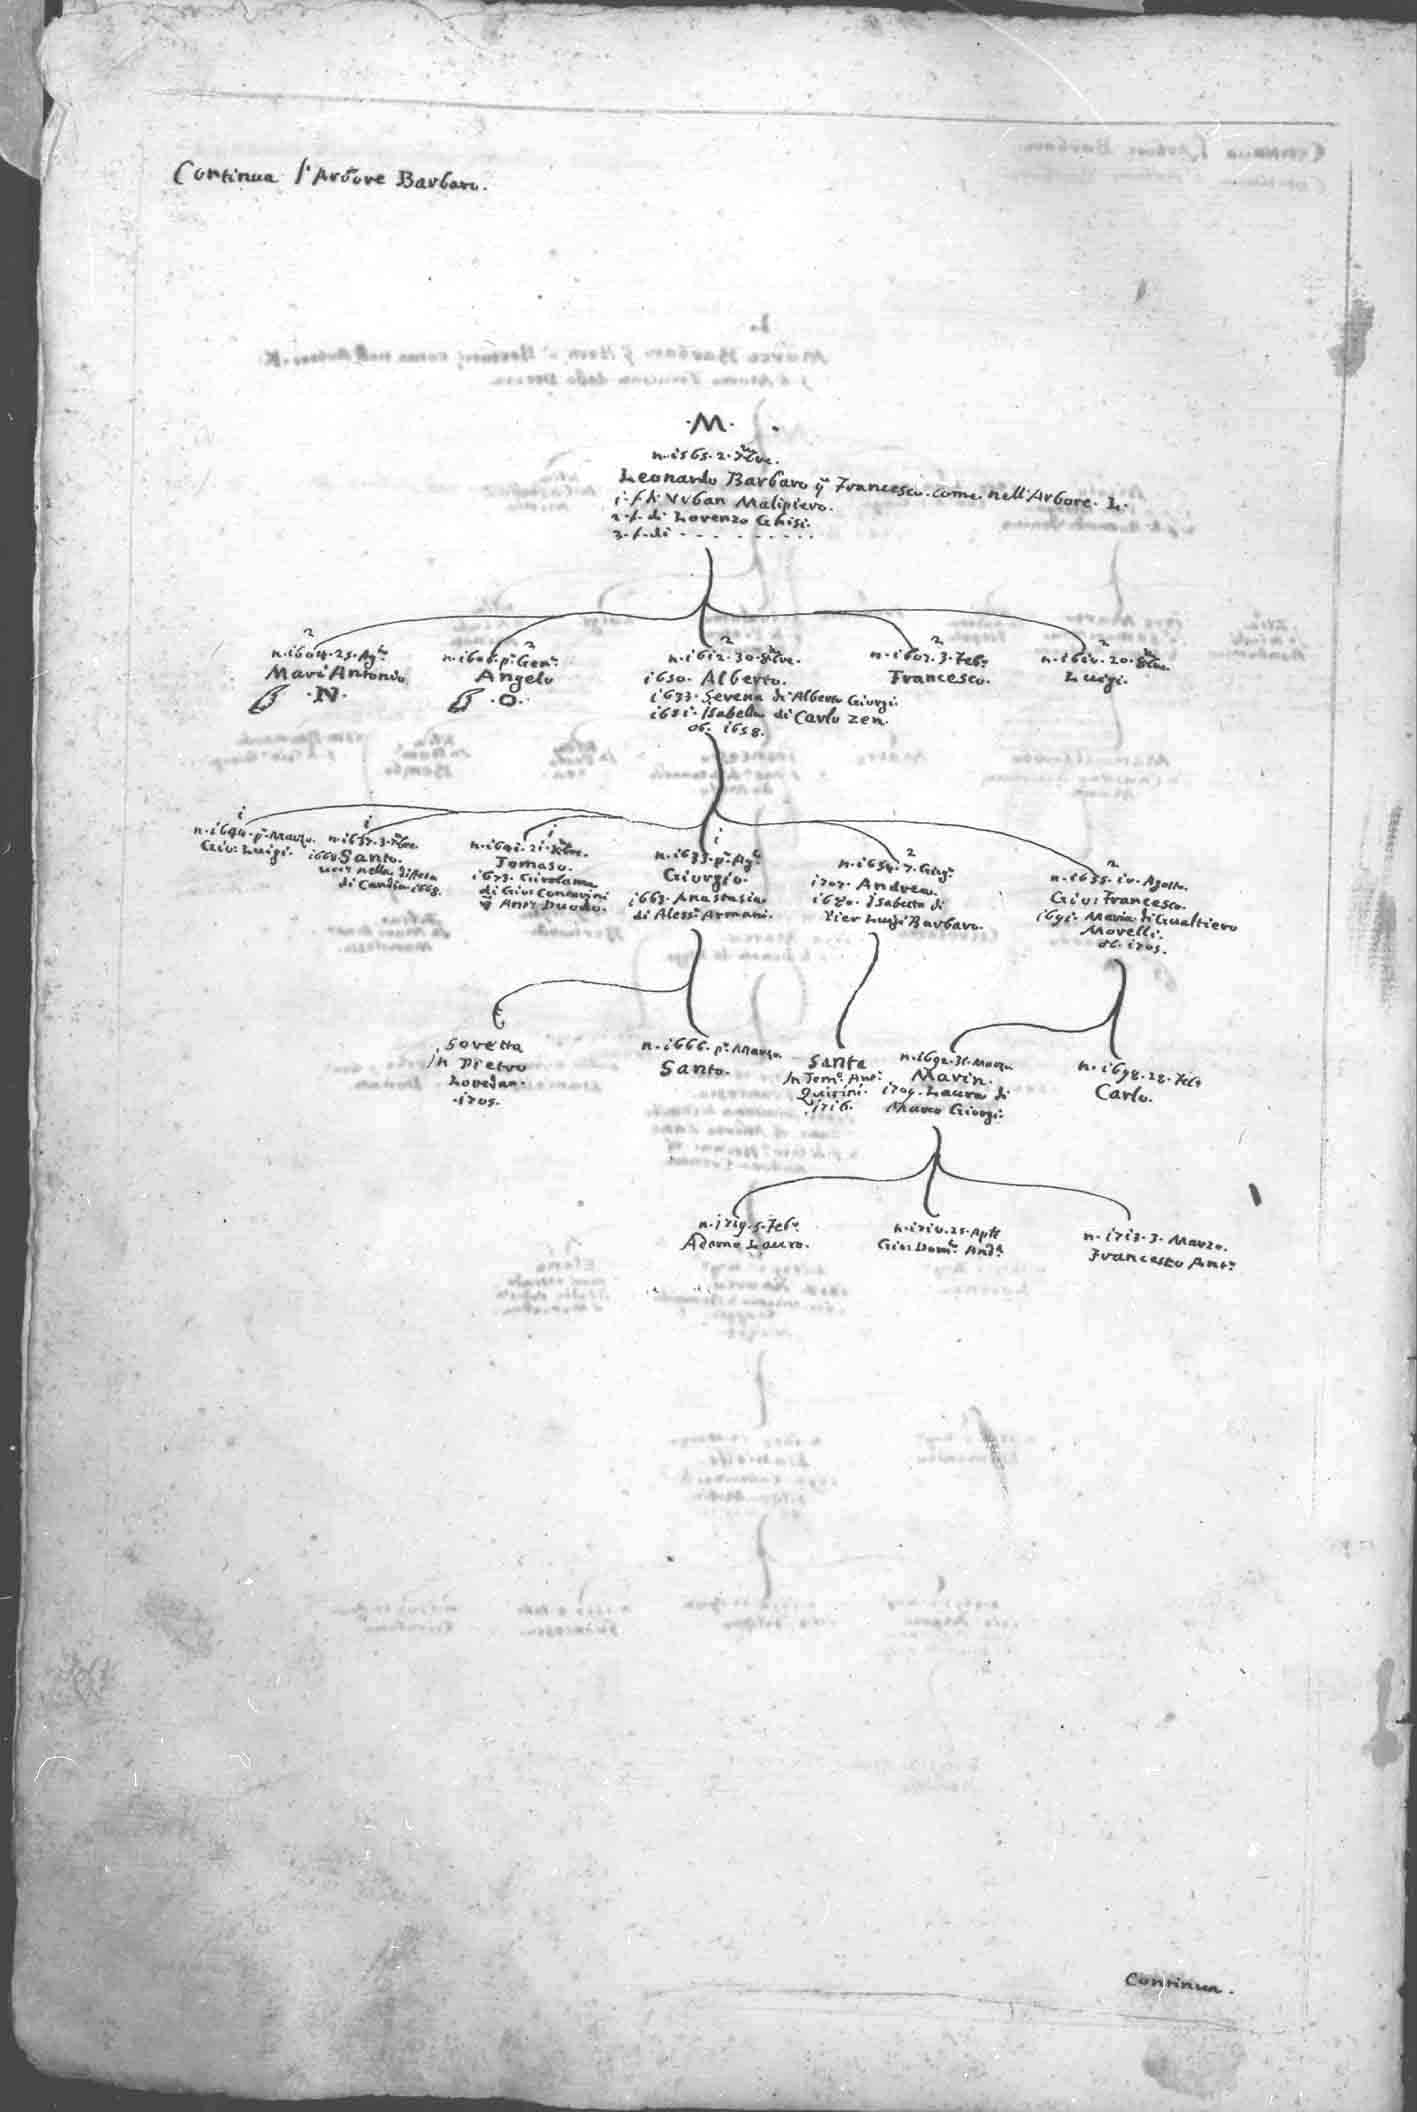 Continua l'Arbore Barbaro.
·M·
n·1565·2·7bre.
Leonardo Barbaro q Francesco·come·nell'Arbore·L·
1·f·di Vrban Malipiero.
2·f·di Lorenzo Ghisi.
3·f·di - - - - - - - -
2
n·1604·25·Agto
Marc'Antonio
·N·
2
n·1606·po·Genro
Angelo
·O·
2
n·1612·30·8bre.
1630· Alberto.
1633· Serena di Alberto Giorgi.
1651· Isabella di Carlo Zen.
ob· 1658.
2
n·1607·3·Febo
Francesco.
2
n·1610·20·8bre.
Luigi.
1
n·1644·po·Marzo.
Gio: Luigi.
1
n·1637·3·7bre.
1668 Santo.
ucc: nella difesa
di Candia·1668.
1
n·1641·21·Xbre.
Tomaso.
1673· Girolama
di Gio: Contarini
Ant: Duodo.
1
n·1633·po·Agto
Giorgio.
1663· Anastasia
di Alessro Armani.
2
n·1654·7·Giugo
1707· Andrea.
1680· Isabetta di
Pier Luigi Barbaro.
2
n·1655·10·Agosto.
Gio: Francesco.
1691· Maria di Gualtiero
Morelli.
ob· 1705.
Soretta
in Pietro
Loredan·
·1705.
n·1666·po·Marzo.
Santo.
Santa
in Tomo Anto
Quirini·
·1716·
n·1692·31·Marzo
Marin.
1709·Laura di
Marco Giorgi.
n·1698·28·Febo
Carlo.
n·1719·5·Febo
Adamo Lauro.
n·1710·25·Aple
Gio: Domo Anda
n·1713·3·Marzo.
Francesco Anto
Continua.